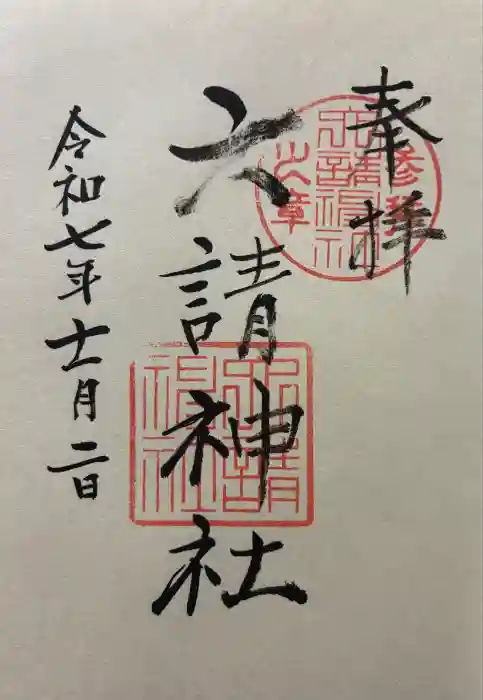 奉拝
六請神社
令和七年十一月二日
参拝之章
六請神社
六請神社